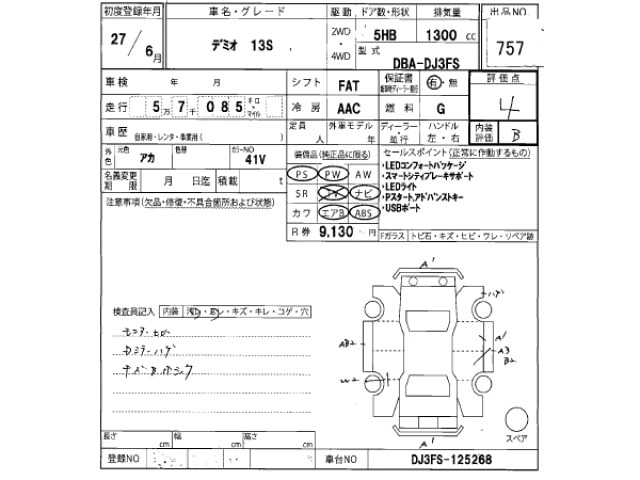 初度登録年月 車名・グレード 駆動 ドア数・形状 排気量 出品NO
27/6月 デミオ 13S 2WD・4WD 5HB 1300 cc 757
型式 DBA-DJ3FS
車検 年 月 シフト FAT 保証書 有・無 評価点
走行 5万7千085 キロ・マイル 冷房 AAC 燃料 G 4
車歴 自家用・レンタ・事業用( ) 定員 人 外車モデル 年 ディーラー・並行 ハンドル 左・右 内装評価 B
外色 元色 アカ 色替 カラーNO 41V 装備品(純正品に限る) セールスポイント(正常に作動するもの)
PS PW AW ・LEDコンフォートパッケージ
・スマートシティブレーキサポート
名義変更期限 月 日迄 積載 t SR TV ナビ ・LEDライト
・Pスタート,アドバンストキー
注意事項(欠品・修復・不具合箇所および状態) カワ エアB ABS ・USBポート
R券 9,130 円 Fガラス トビ石・キズ・ヒビ・ワレ・リペア跡
A1
ハゲ
検査員記入 内装 汚レ・コゲ・キズ・キレ・コゲ・穴
モニターヒビ A1
Dミラーハゲ AB2 A3
B2
W2
A1
スペア
長さ cm 幅 cm 高さ cm
登録NO 車台NO DJ3FS-125268